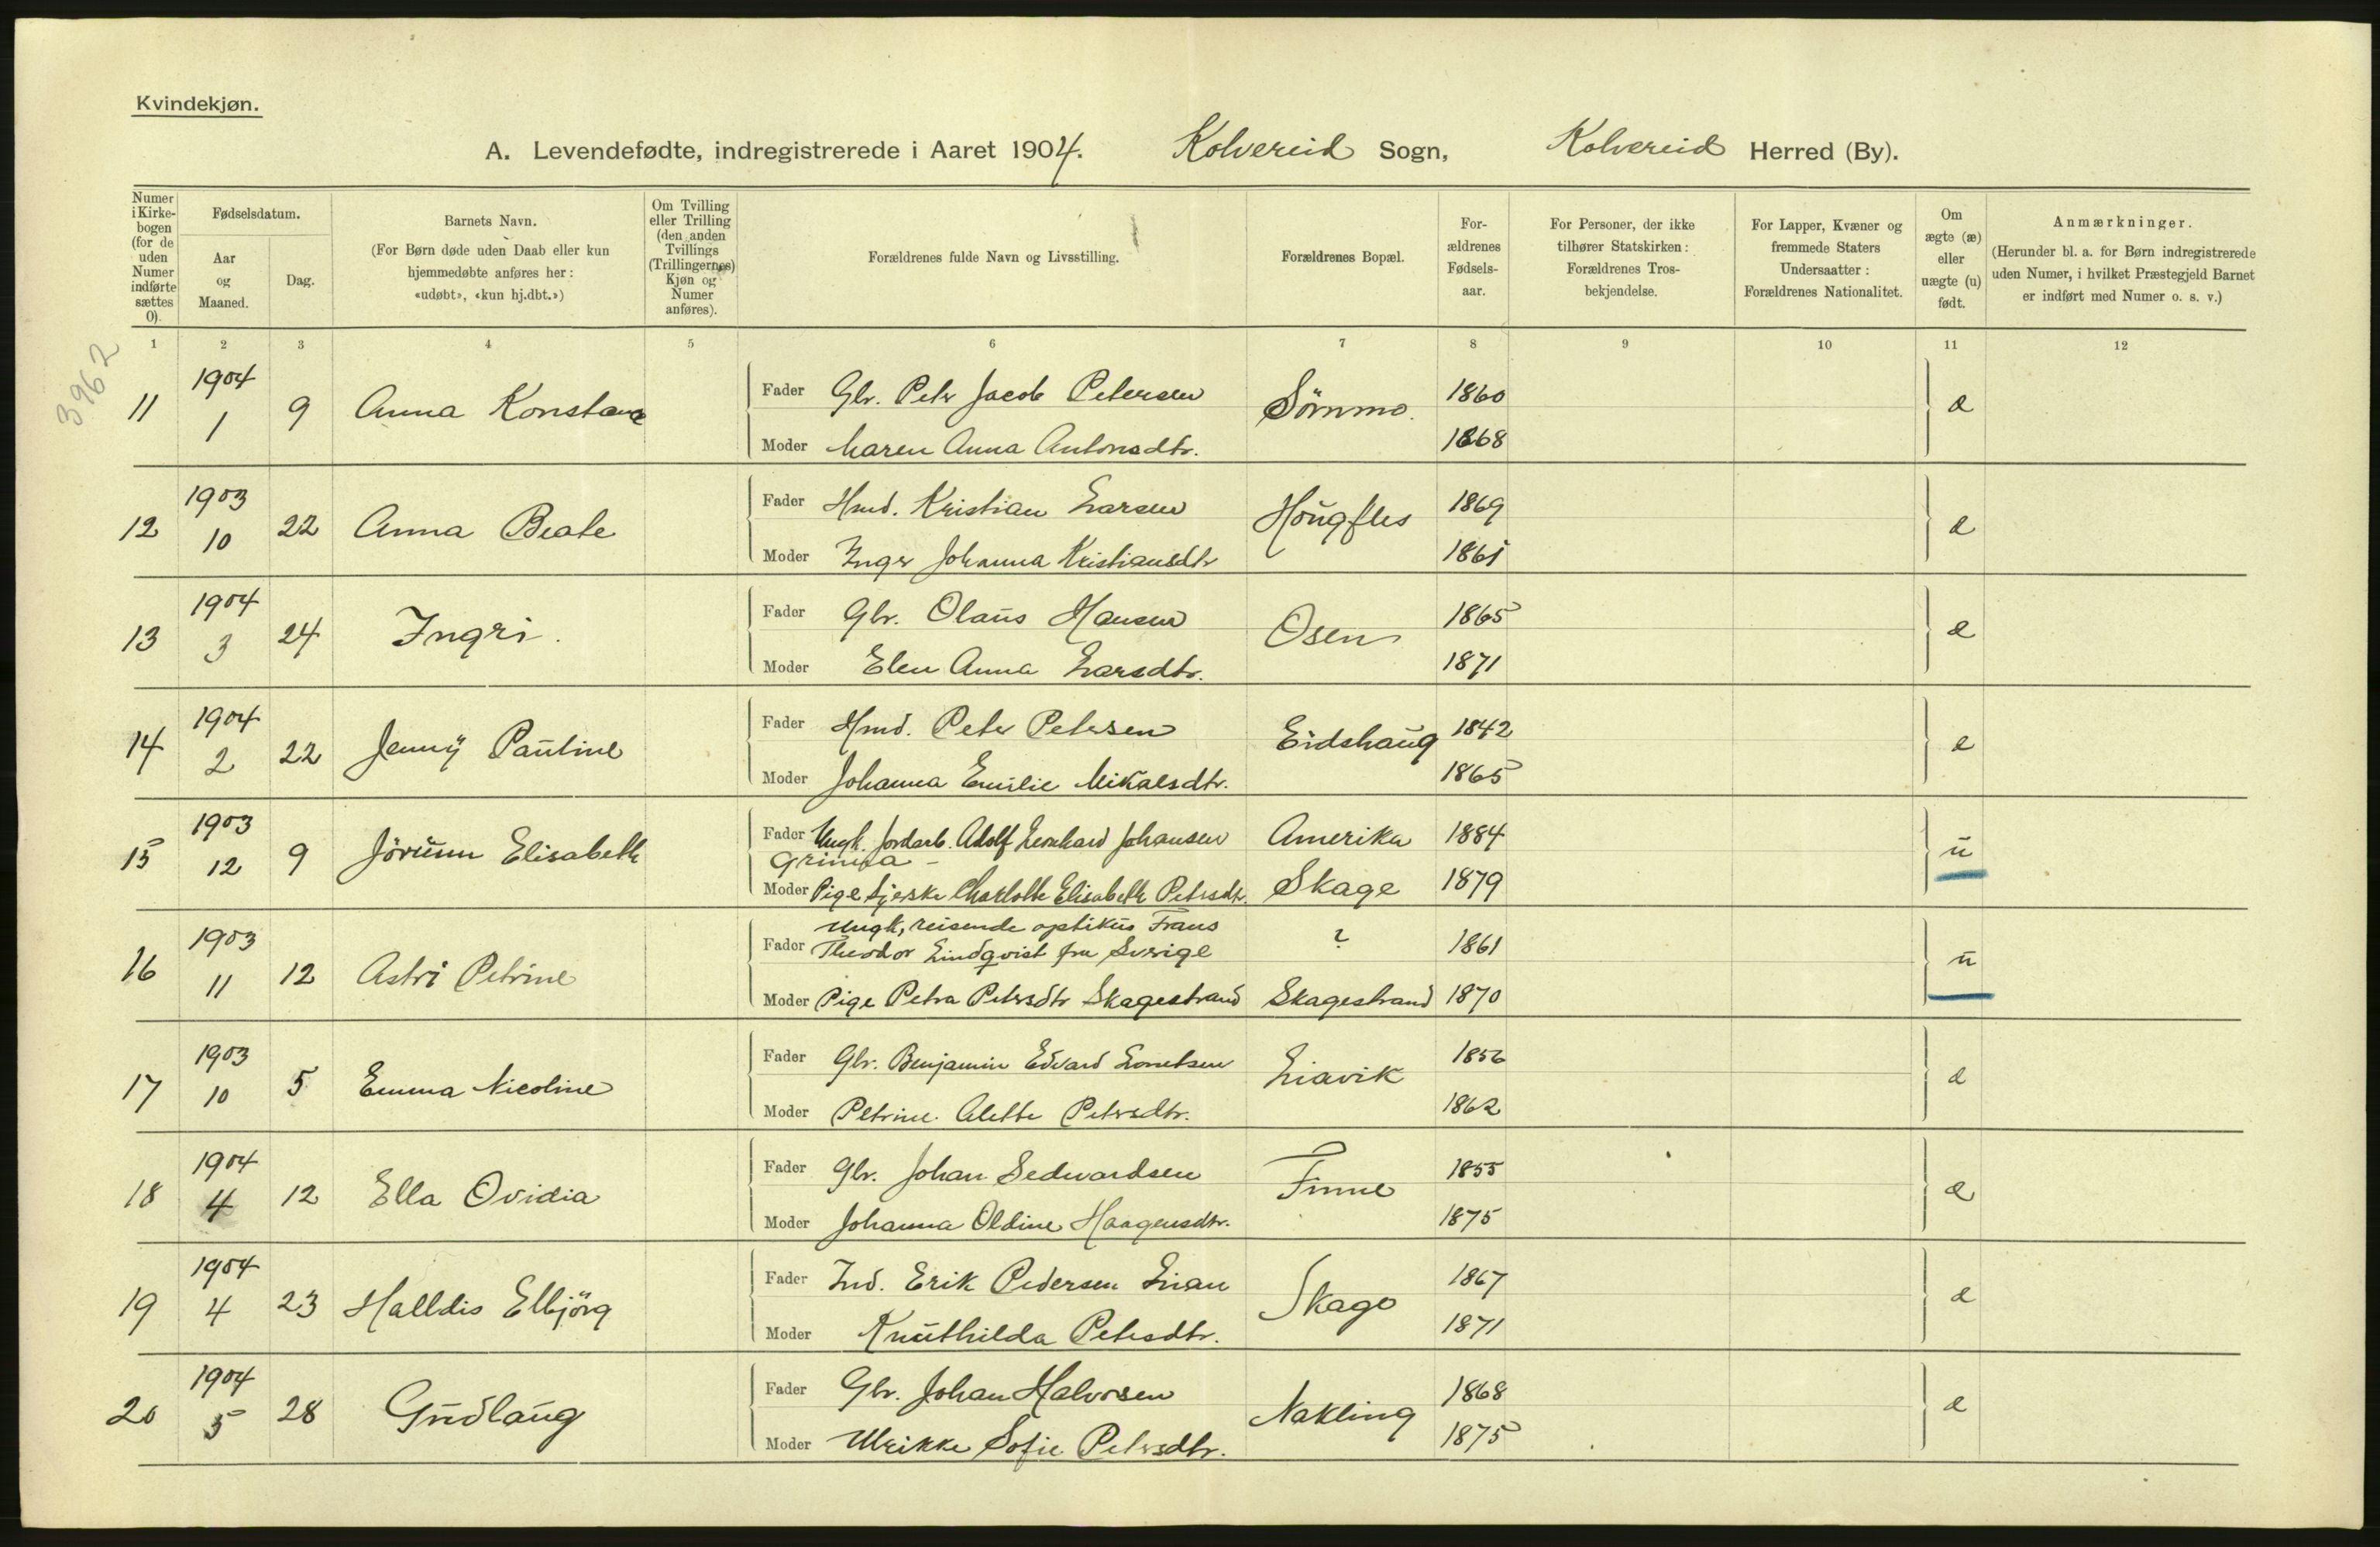 Kvindekjøn.
A. Levendefødte, indregistrerede i Aaret 1904. Kolvereid Sogn, Kolvereid Herred (By).
Numer i Kirkebogen (for de uden Numer indførte sættes 0).
Fødselsdatum.
Aar og Maaned.
Dag.
Barnets Navn.
(For Børn døde uden Daab eller kun hjemmedøbte anføres her: «udøbt», «kun hj.dbt.»)
Om Tvilling eller Trilling (den anden Tvillings (Trillingernes) Kjøn og Numer anføres).
Forældrenes fulde Navn og Livsstilling.
Forældrenes Bopæl.
Forældrenes Fødselsaar.
For Personer, der ikke tilhører Statskirken: Forældrenes Trosbekjendelse.
For Lapper, Kvæner og fremmede Staters Undersaatter: Forældrenes Nationalitet.
Om ægte (æ) eller uægte (u) født.
Anmærkninger.
(Herunder bl. a. for Børn indregistrerede uden Numer, i hvilket Præstegjeld Barnet er indført med Numer o. s. v.)
1 2 3 4 5 6 7 8 9 10 11 12
3962
11 1904 1 9 Anna Konstance
Fader Gbr. Peter Jacob Petersen Sömmo. 1860 æ
Moder Maren Anna Antonsdtr. 1868
12 1903 10 22 Anna Beate
Fader Hmd. Kristian Larsen Hougfles 1869 æ
Moder Inger Johanna Kristiansdtr 1861
13 1904 3 24 Ingri.
Fader Gbr. Olaus Hansen Osen 1865 æ
Moder Elen Anna Larsdtr. 1871
14 1904 2 22 Jenny Pauline
Fader Hmd. Peter Petersen Eidshaug 1842 æ
Moder Johanna Emilie Mikalsdtr. 1865
15 1903 12 9 Jörunn Elisabeth
Fader Ungk. Jordarb. Adolf Leonhard Johansen Amerika 1884 u
Moder Pige Charlotte Elisabeth Petersdtr. Skage 1879
16 1903 11 12 Astri Petrine
Fader Ungk, reisende optikus Frans
Theodor Lindqvist fra Sverige ? 1861 u
Moder Pige Petra Petersdtr Skagestrand Skagestrand 1870
17 1903 10 5 Emma Nicoline
Fader Gbr. Benjamin Edvard Lorntsen Liavik 1856 æ
Moder Petrine Alette Petersdtr. 1862
18 1904 4 12 Ella Ovidia
Fader Gbr. Johan Sedvardsen Finne 1855 æ
Moder Johanna Oldine Haagensdtr. 1875
19 1904 4 23 Halldis Elbjörg
Fader Ind. Erik Pedersen Lian Skage 1867 æ
Moder Knuthilda Petersdtr. 1871
20 1904 5 28 Gudlaug
Fader Gbr. Johan Halvorsen Nakling 1868 æ
Moder Ulrikke Sofie Petersdtr. 1875